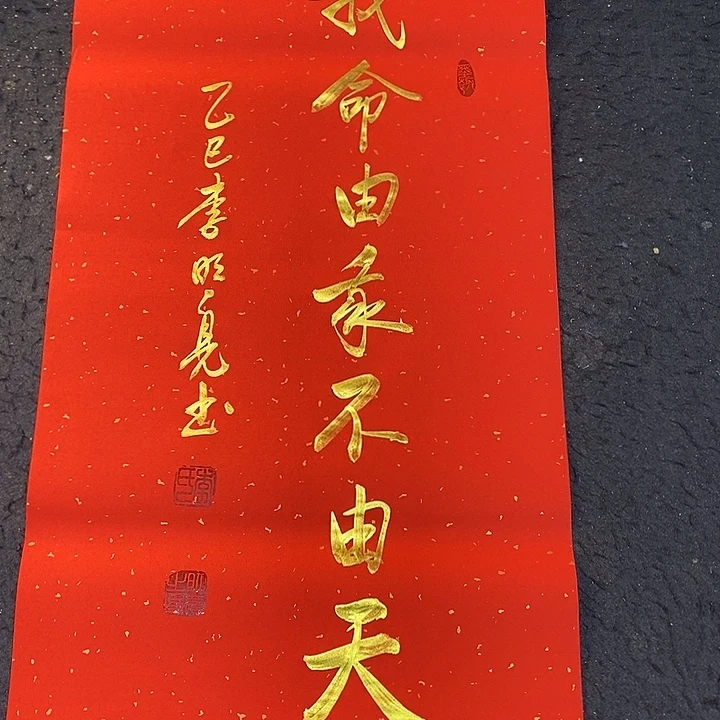 我命由我不由天
乙巳李明亮书